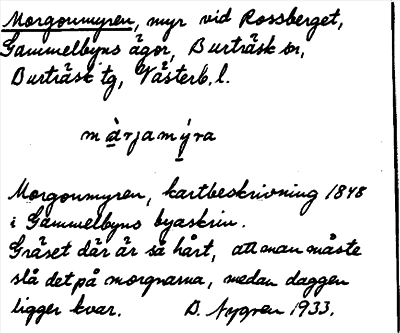 Morgonmyren, myr vid Rossberget,
Gammelbyns ägor, Burträsk sn,
Burträsk tg, Västerb. l.
màrjamýra
Morgonmyren, kartbeskrivning 1848
i Gammelbyns byaskrin.
Gräset där är så hårt, att man måste
slå det på morgnarna, medan daggen
ligger kvar. D. Nygren 1933.